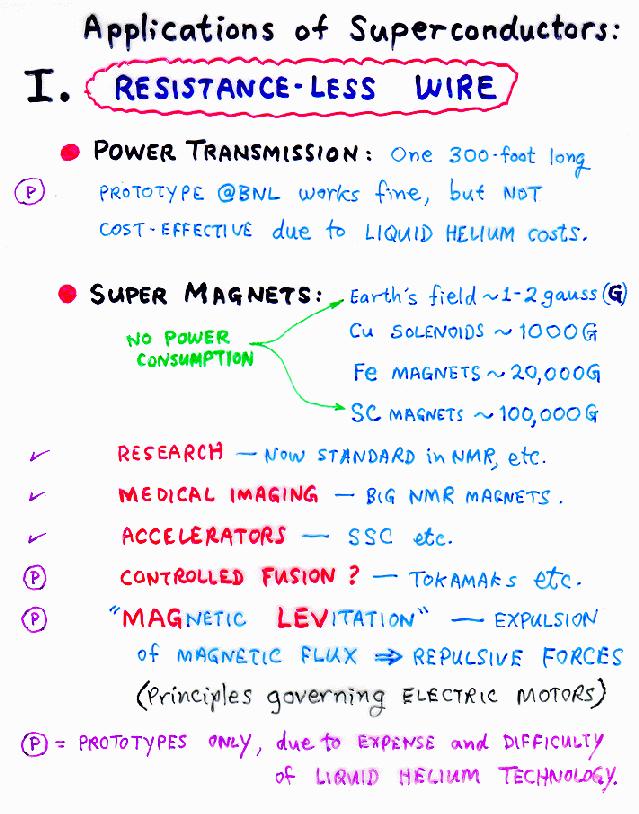 Applications of Superconductors:
I. RESISTANCE-LESS WIRE
● POWER TRANSMISSION: One 300-foot long
Ⓟ PROTOTYPE @BNL works fine, but NOT
COST-EFFECTIVE due to LIQUID HELIUM costs.
● SUPER MAGNETS: Earth's field ~1-2 gauss (G)
NO POWER
CONSUMPTION
Cu SOLENOIDS ~ 1000G
Fe MAGNETS ~ 20,000G
SC MAGNETS ~ 100,000G
✓ RESEARCH — NOW STANDARD in NMR, etc.
✓ MEDICAL IMAGING — BIG NMR MAGNETS.
✓ ACCELERATORS — SSC etc.
Ⓟ CONTROLLED FUSION? — TOKAMAKs etc.
Ⓟ "MAGNETIC LEVITATION" — EXPULSION
of MAGNETIC FLUX ⇒ REPULSIVE FORCES
(Principles governing ELECTRIC MOTORS)
Ⓟ = PROTOTYPES ONLY, due to EXPENSE and DIFFICULTY
of LIQUID HELIUM TECHNOLOGY.